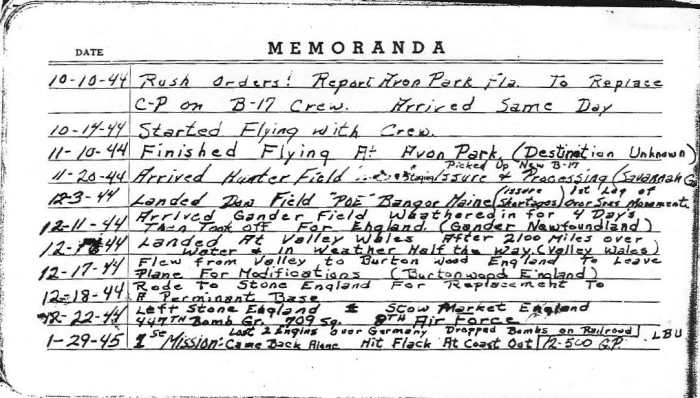 DATE MEMORANDA
10-10-44 Rush Orders! Report Avon Park Fla. To Replace
C-P on B-17 Crew. Arrived Same Day
10-14-44 Started Flying with Crew.
11-10-44 Finished Flying At Avon Park. (Destination Unknown)
Picked Up New B-17
11-20-44 Arrived Hunter Field Staging Issue & Processing (Savannah G
(Issue 1st Leg of
12-3-44 Landed Dow Field "POE" Bangor Maine Shortages) Over Seas Movement.
Arrived Gander Field Weathered in for 4 Day's
12-11-44 Then Took Off For England. (Gander Newfoundland)
44 Landed At Valley Wales After 2100 Miles over
Water & In Weather Half the Way. (Valley Wales)
12-17-44 Flew from Valley to Burton Wood England To Leave
Plane For Modifications (Burtonwood England)
12-18-44 Rode To Stone England For Replacement To
A Perminant Base
12-22-44 Left Stone England Stow Market England
447TH Bomb Gr. 709 Sq. 8TH Air Force
Lost 2 Engins Over Germany Dropped Bombs on Railroad LBU
1-29-45 1st Mission: Came Back Alone Hit Flack At Coast Out 12-500 G.P.